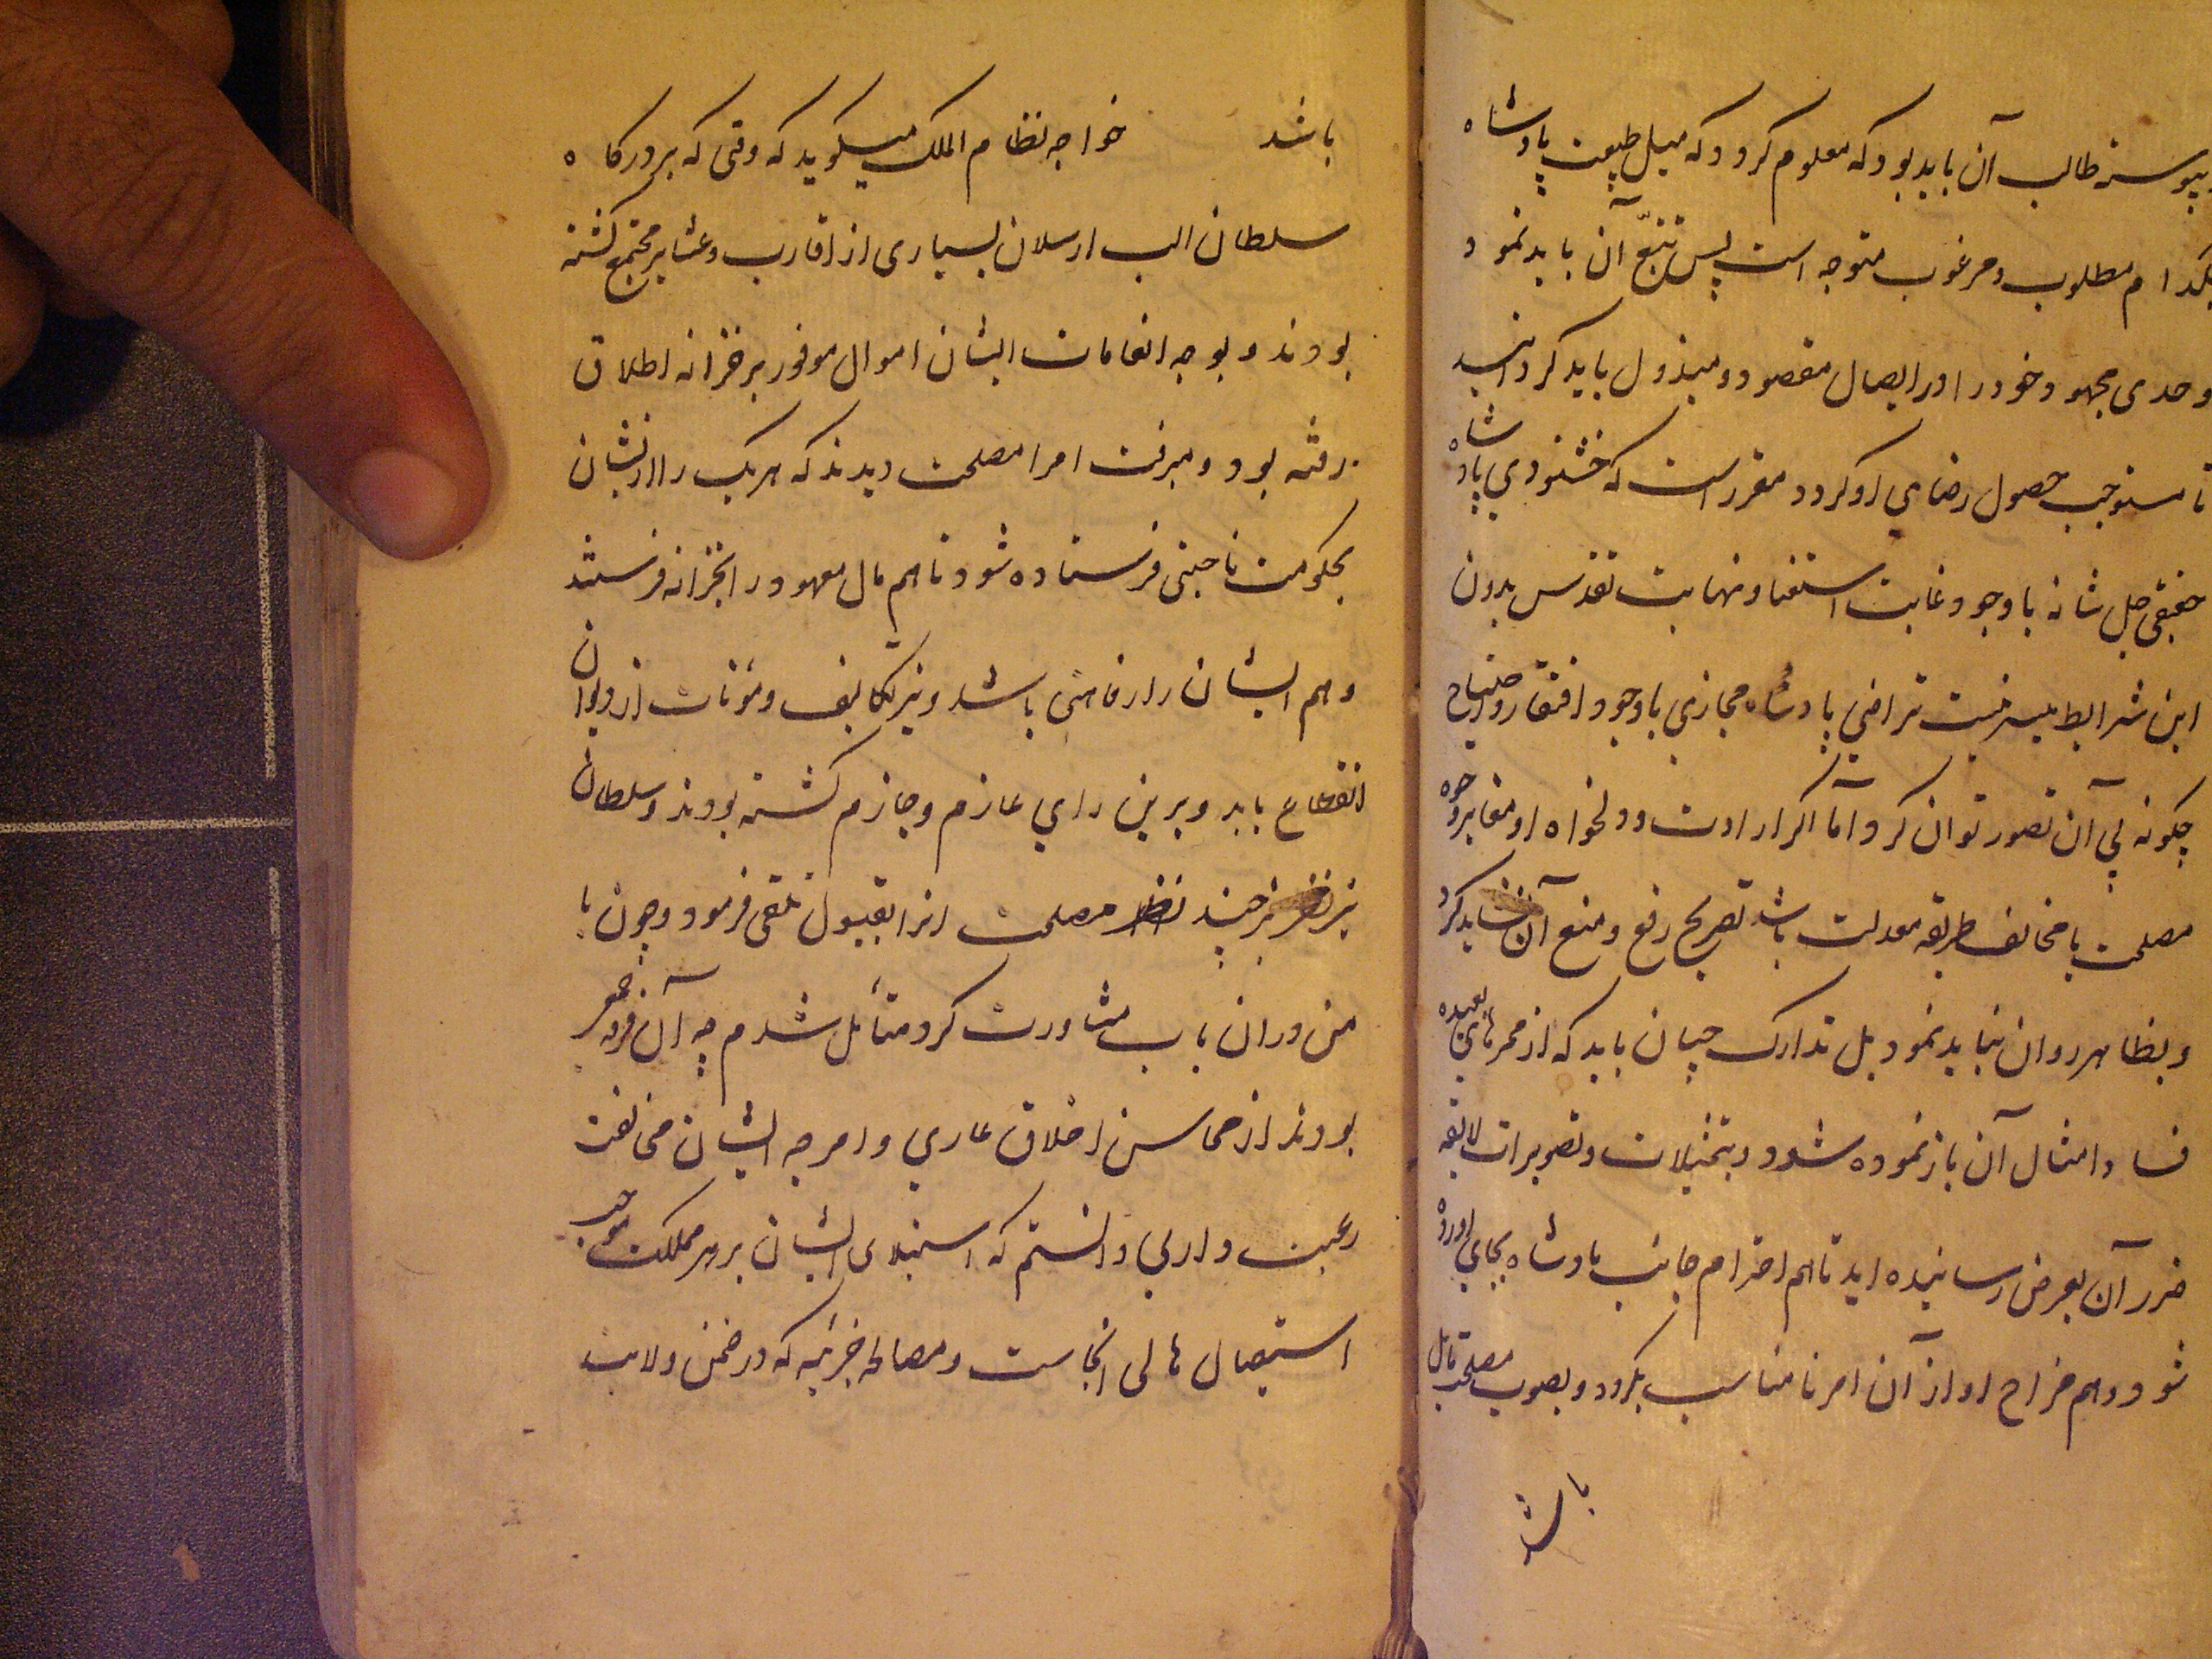 پیوسته طالب آن باید بود که معلوم کرد که میل طبیعت پادشاه
بکدام مطلوب و مرغوب متوجه است پس تتبّع آن باید نمود
وحدی مجهود خود را در ایصال مقصود و مبذول باید کردانید
تا مستوجب حصول رضای او کردد مقرر است که خشنودی پادشاه
حقیقی جل شانه با وجود غایت استغنا و نهایت تقدس بدون
این شرایط میسر نیست تراضی پادشاه مجازی با وجود افتقار و احتیاج
چکونه بی آن تصور توان کرد آما اکر ارادت و دلخواه او مغایر وجوه
مصلحت یا مخالف طریقه معدلت باشد تصریح رفع و منع آن نشاید کرد
و بظاهر رد آن نباید نمود بل تدارک چنان باید که از ممرهای بعیده
فساد امثال آن باز نموده شود و بتمثیلات و تصویرات لایقه
ضرر آن بعرض رسانیده اید تا هم احترام جانب پادشاه بجای اورده
شود و هم مزاج او از آن امر نامناسب بکردد و بصوب مصلحت مایل
باشد
باشد خواجه نظام الملک میکوید که وقتی که بر درکاه
سلطان الب ارسلان بسیاری از اقارب و عشایر مجتمع کشته
بودند و بوجه انعامات ایشان اموال موفور بر خزانه اطلاق
رفته بود و میرفت امرا مصلحت دیدند که هر یک را از ایشان
بحکومت ناحیتی فرستاده شود تا هم مال معهود را بخزانه فرستند
و هم ایشان را رفاهتی باشد و نیز تکالیف و مؤنات از دیوان
انقطاع یابد و برین رای عازم و جازم کشته بودند و سلطان
نیز بر چند نظر مصلحت انرا بقبول تلقی فرمود و چون با
من دران باب مشاورت کرد متأمل شدم چه آن فرقه
بودند از محاسن اخلاق عاری و امر جه ایشان مخالفت
رعیت داری دانستم که استیلای ایشان بر هر مملکت موجب
استیصال اهالی انجاست و مصالحه جزئیه که در ضمن ولایت